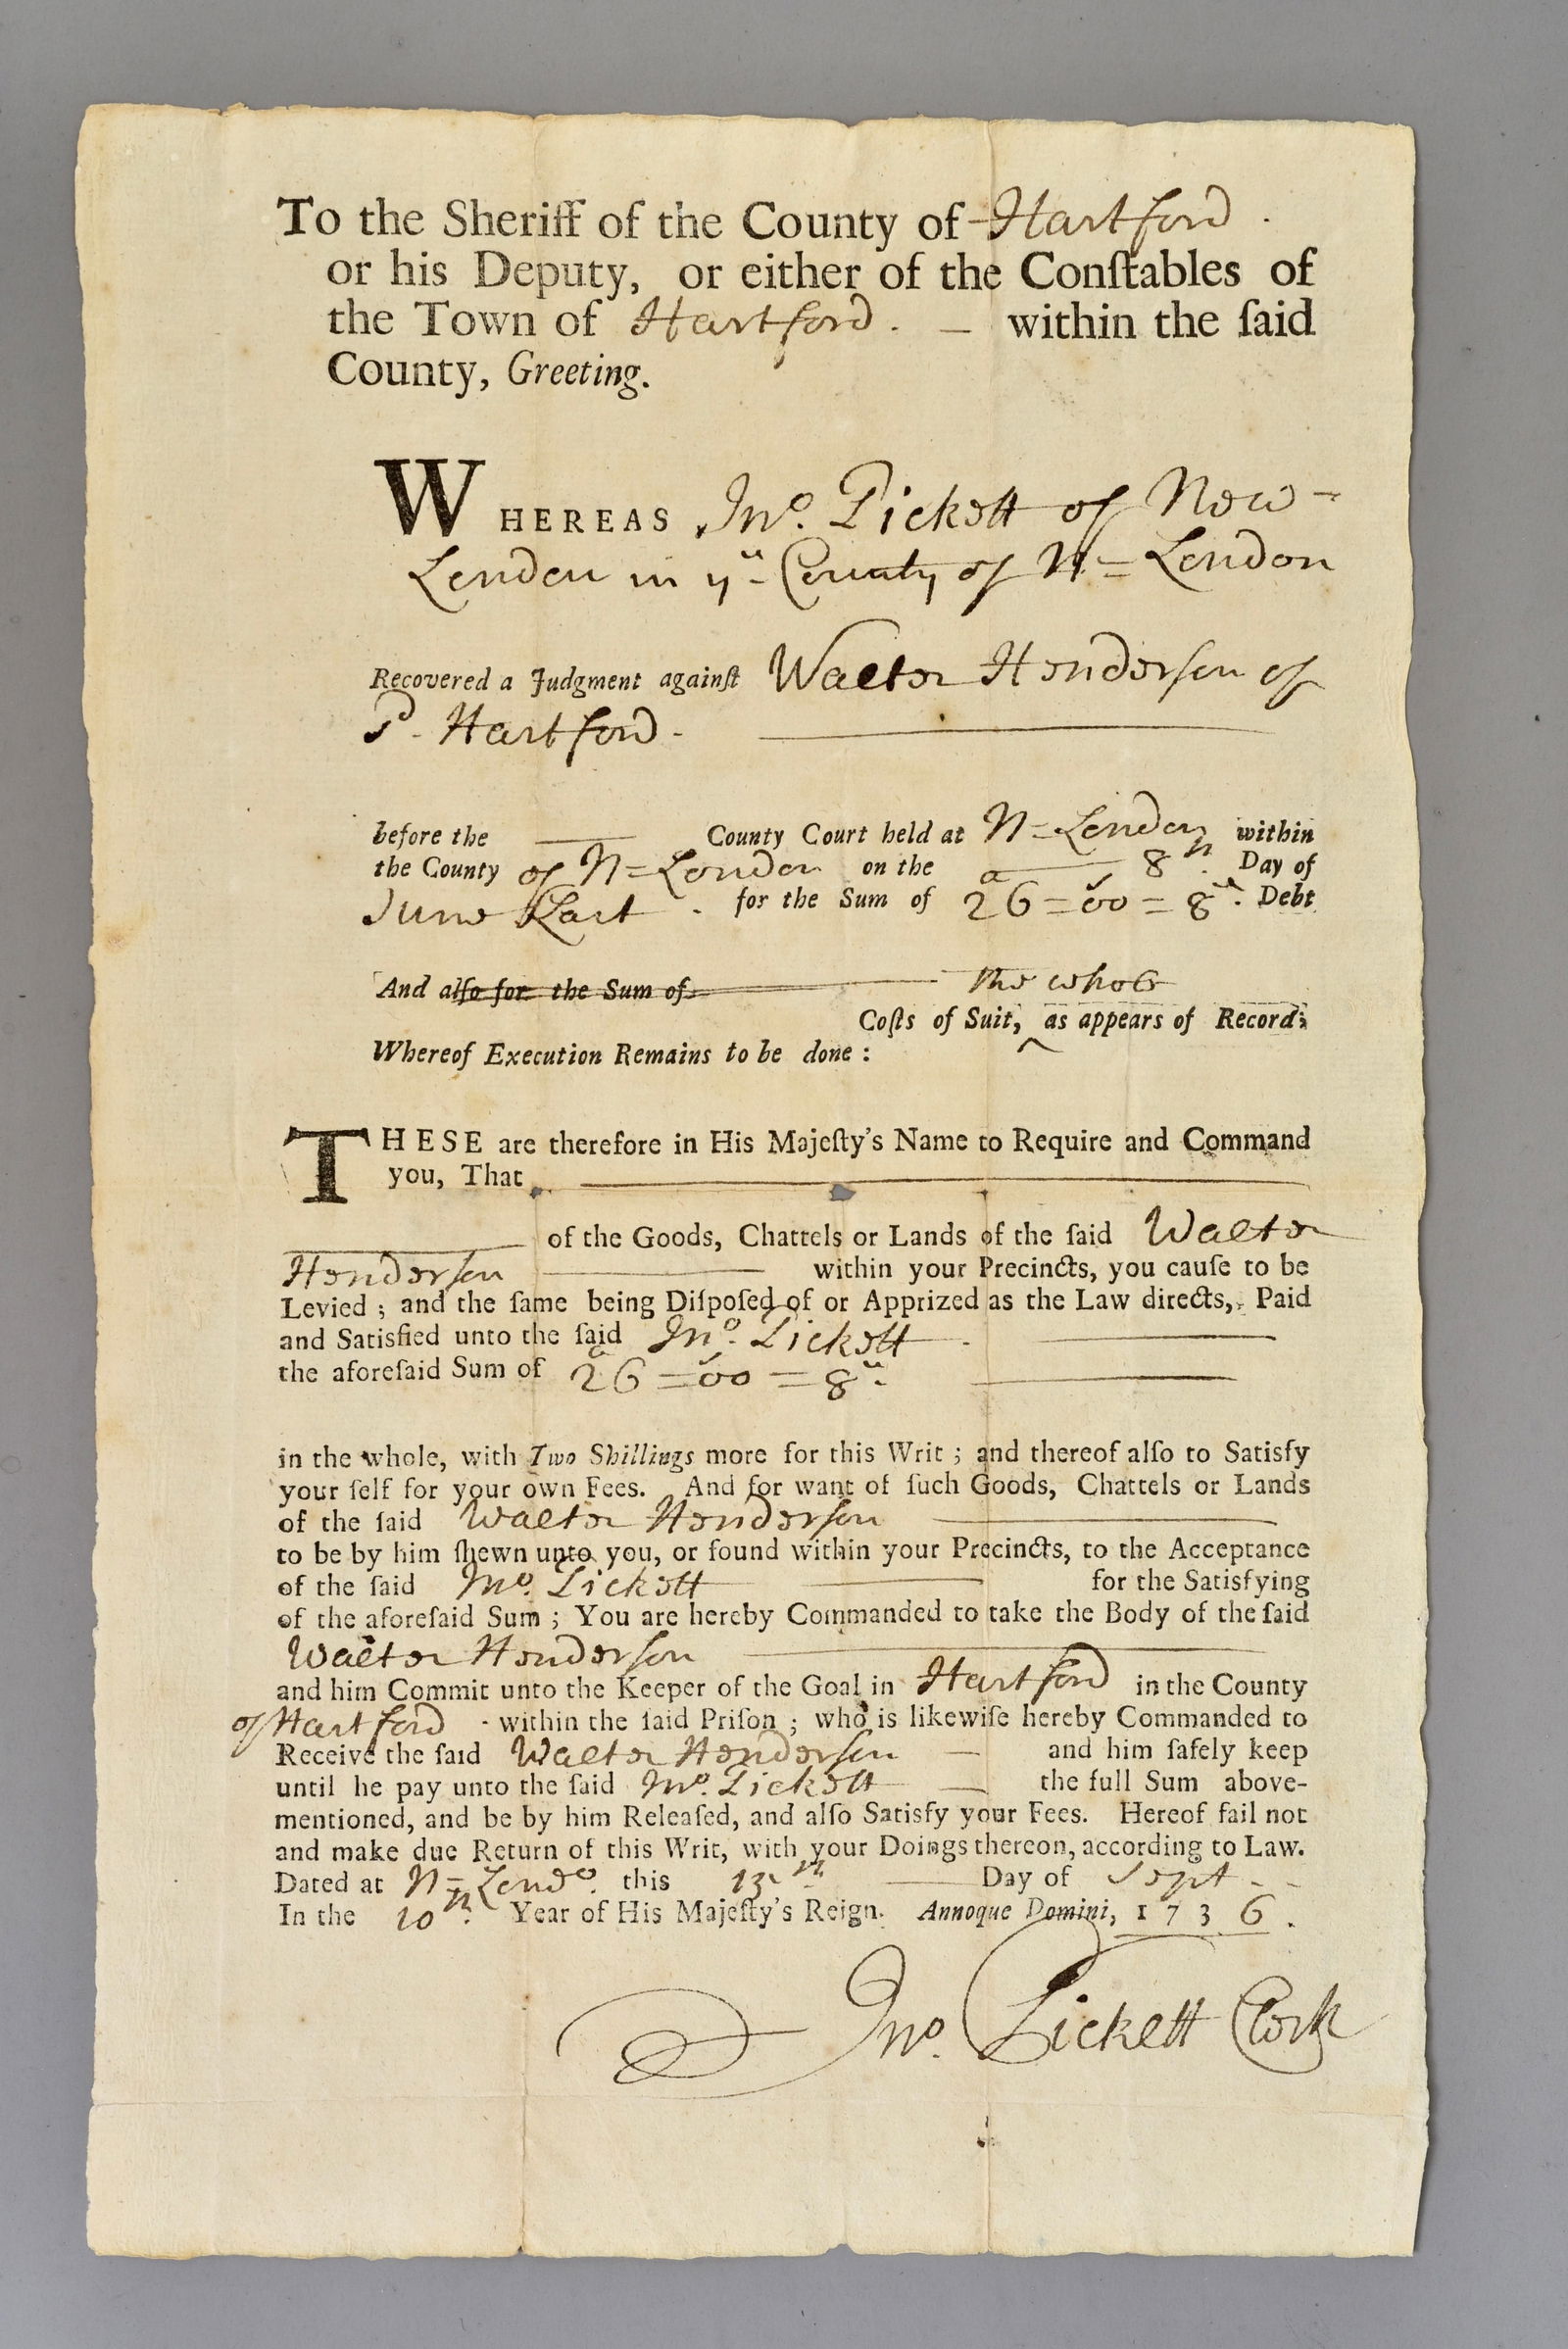 To the Sheriff of the County of Hartford.
or his Deputy, or either of the Conſtables of
the Town of Hartford. – within the ſaid
County, Greeting.
WHEREAS Jno. Pickett of New-
London in ye County of N=London
Recovered a Judgment againſt Walter Henderson of
sd. Hartford.
before the County Court held at N=London within
the County of N=London on the 8th. Day of
June Last. for the Sum of 26=00=8d. Debt
And alſo for the Sum of the whole
Coſts of Suit, as appears of Record;
Whereof Execution Remains to be done:
THESE are therefore in His Majeſty's Name to Require and Command
you, That
of the Goods, Chattels or Lands of the ſaid Walter
Henderson within your Precincts, you cauſe to be
Levied; and the ſame being Diſpoſed of or Apprized as the Law directs, Paid
and Satisfied unto the ſaid Jno. Pickett.
the aforeſaid Sum of 26=00=8d.
in the whole, with Two Shillings more for this Writ; and thereof alſo to Satisfy
your ſelf for your own Fees. And for want of ſuch Goods, Chattels or Lands
of the ſaid Walter Henderson
to be by him ſhewn unto you, or found within your Precincts, to the Acceptance
of the ſaid Jno. Pickett for the Satisfying
of the aforeſaid Sum; You are hereby Commanded to take the Body of the ſaid
Walter Henderson
and him Commit unto the Keeper of the Goal in Hartford in the County
of Hartford - within the ſaid Priſon; who is likewiſe hereby Commanded to
Receive the ſaid Walter Henderson – and him ſafely keep
until he pay unto the ſaid Jno. Pickett – the full Sum above-
mentioned, and be by him Releaſed, and alſo Satisfy your Fees. Hereof fail not
and make due Return of this Writ, with your Doings thereon, according to Law.
Dated at N=Londo. this 13th. Day of Sept.
In the 10th. Year of His Majeſty's Reign. Annoque Domini, 1736.
Jno. Pickett Clerk